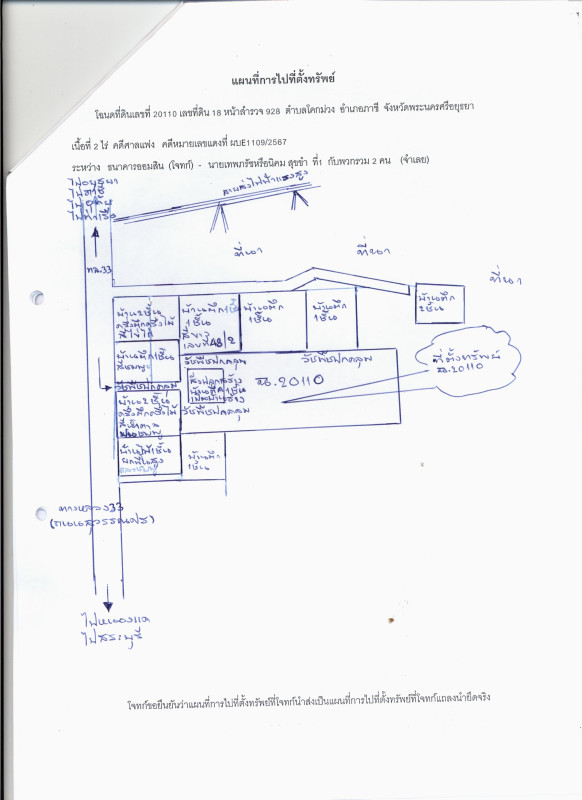 แผนที่การไปที่ตั้งทรัพย์
โฉนดที่ดินเลขที่ 20110 เลขที่ดิน 18 หน้าสำรวจ 928 ตำบลโคกม่วง อำเภอภาชี จังหวัดพระนครศรีอยุธยา
เนื้อที่ 2 ไร่ คดีศาลแพ่ง คดีหมายเลขแดงที่ ผบE1109/2567
ระหว่าง ธนาคารออมสิน (โจทก์) - นายเทพภรัชหรือนิคม สุขขำ ที่1 กับพวกรวม 2 คน (จำเลย)
ไปอยุธยา
สายส่งไฟฟ้าแรงสูง
ที่นา
ที่นา
ที่นา
ทล.33
บ้าน 2 ชั้น
ครึ่งตึกครึ่งไม้
บ้านตึก 1 ชั้น
เลขที่ 48/2
บ้านตึก
1 ชั้น
บ้านตึก
1 ชั้น
บ้านตึก
2 ชั้น
บ้านตึก 1 ชั้น
วัชพืชปกคลุม
วัชพืชปกคลุม
ที่ตั้งทรัพย์
ฉ.20110
ฉ.20110
วัชพืชปกคลุม
บ้าน 2 ชั้น
ครึ่งตึกครึ่งไม้
วัชพืชปกคลุม
บ้านไม้ 1 ชั้น
ยกพื้นสูง
บ้านตึก
1 ชั้น
ทางหลวง 33
(ถนนสุวรรณศร)
ไปหนองแค
ไปสระบุรี
โจทก์ขอยืนยันว่าแผนที่การไปที่ตั้งทรัพย์ที่โจทก์นำส่งเป็นแผนที่การไปที่ตั้งทรัพย์ที่โจทก์แถลงนำยึดจริง